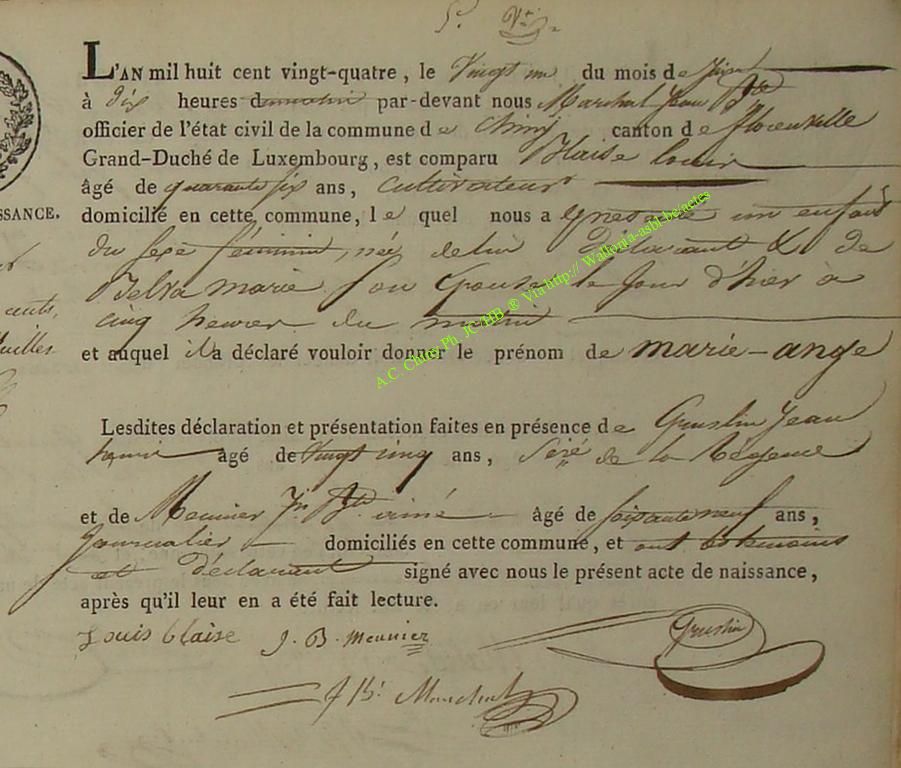 5. Vt.
L'AN mil huit cent vingt-quatre, le Vingt un du mois de Juin
à Dix heures du matin par-devant nous Marchal Jean Bte
officier de l'état civil de la commune de Chiny canton de florenville
Grand-Duché de Luxembourg, est comparu Blaise louis
âgé de quarante six ans, Cultivateur
SSANCE. domicilié en cette commune, le quel nous a présenté un enfant
du sexe féminin né de lui Déclarant & de
cents, Belva marie son Epouse le Jour d'hier à
uilles cinq heures du matin
et auquel il a déclaré vouloir donner le prénom de marie-ange
Lesdites déclaration et présentation faites en présence de Gruslin Jean
henri âgé de Vingt cinq ans, de la Régence
et de Meunier Jn Bte âgé de soixante neuf ans,
Journalier domiciliés en cette commune, et ont les temoins
et Déclarant signé avec nous le présent acte de naissance,
après qu'il leur en a été fait lecture.
Louis blaise J. B. Meunier Gruslin
J Bt Marchal
A.C. Chiny Ph. JC HB ® Via http:// Wallonia-asbl.be/actes